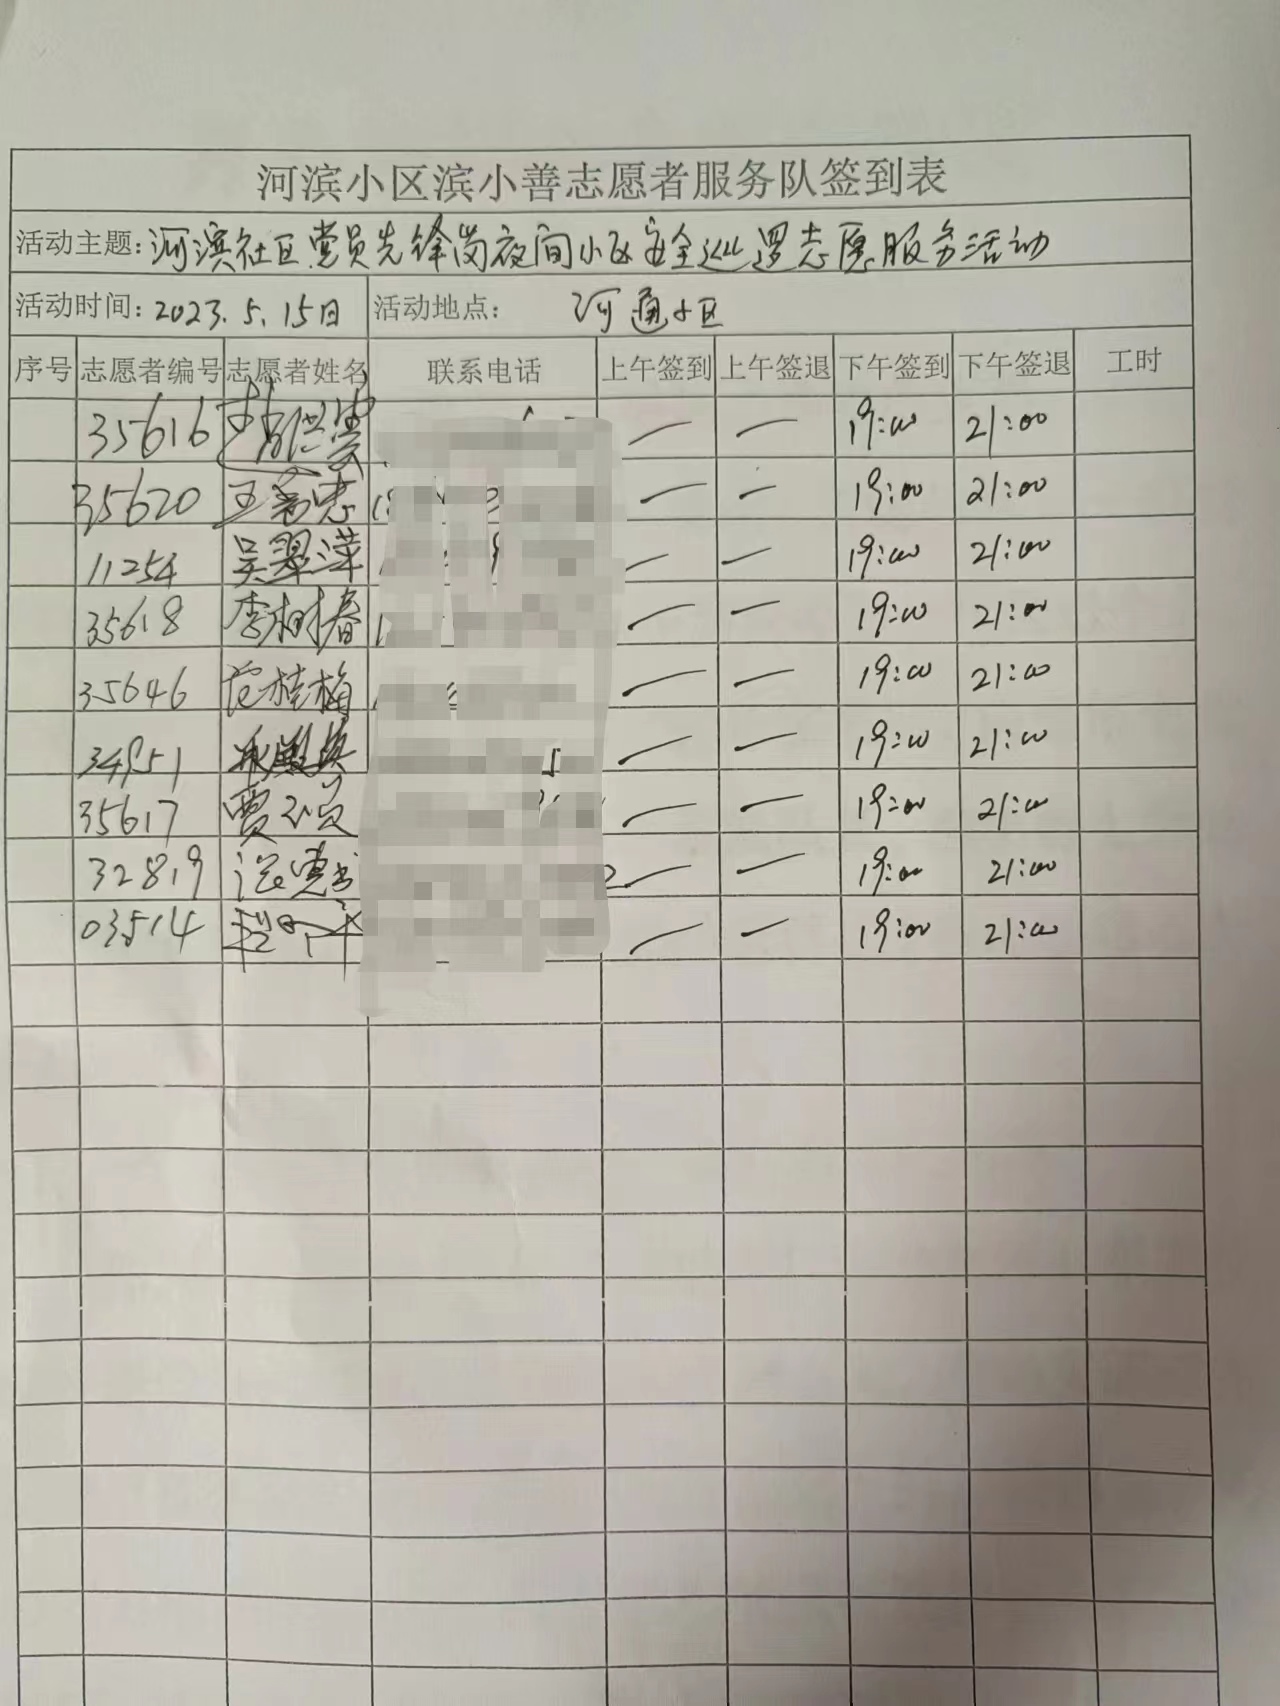 河滨小区滨小善志愿者服务队签到表
活动主题：河滨社区党员先锋岗夜间小区安全巡逻志愿服务活动
活动时间：2023.5.15日 活动地点： 河通小区
序号 志愿者编号 志愿者姓名 联系电话 上午签到 上午签退 下午签到 下午签退 工时
35616 — — 19:00 21:00
35620 王善忠 — — 19:00 21:00
11254 吴翠萍 — — 19:00 21:00
35618 李树春 — — 19:00 21:00
35646 范桂梅 — — 19:00 21:00
34951 — — 19:00 21:00
35617 贾 — — 19:00 21:00
32819 — — 19:00 21:00
03514 — — 19:00 21:00